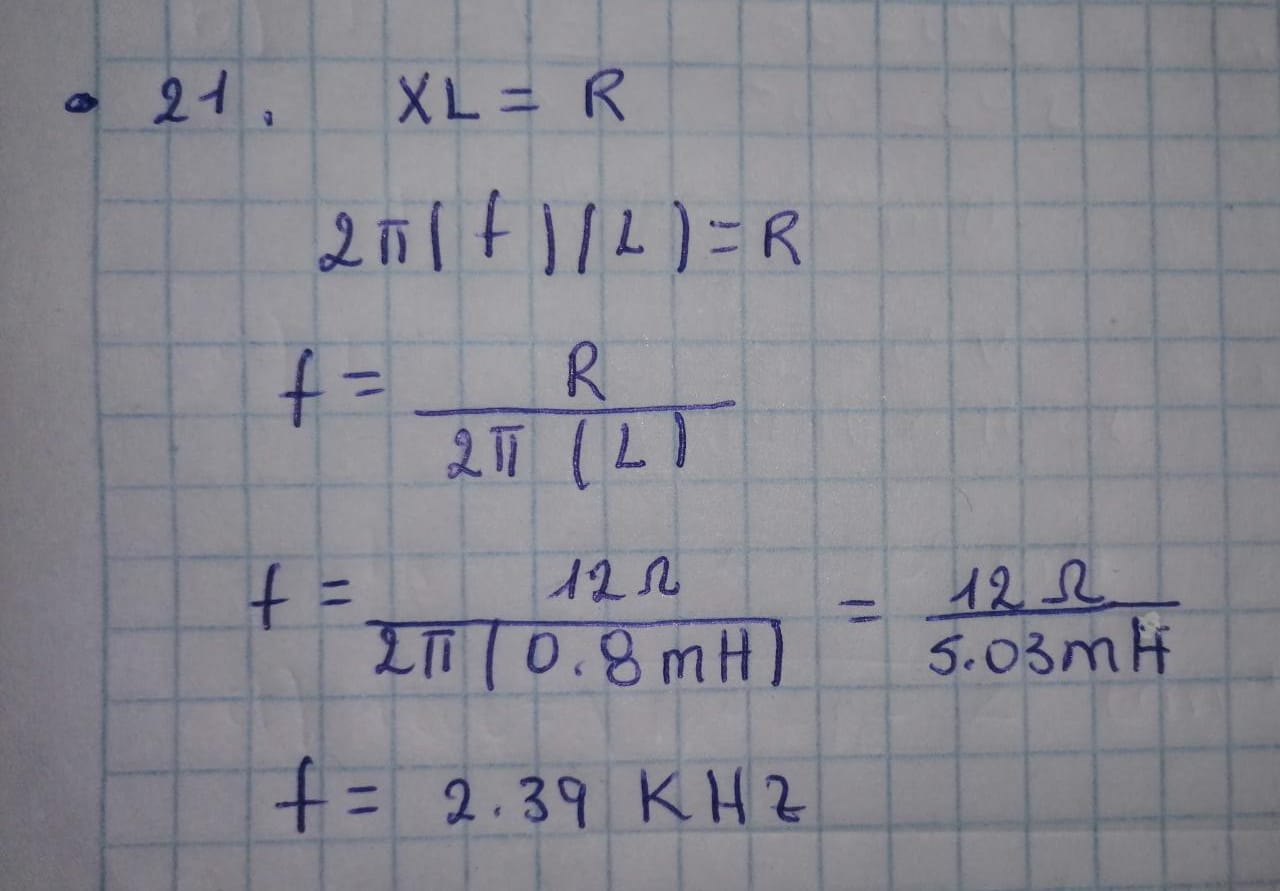 • 21. XL = R
2π(f)(L) = R
f = R / 2π (L)
f = 12 Ω / 2π(0.8mH) = 12 Ω / 5.03mH
f = 2.39 KHz